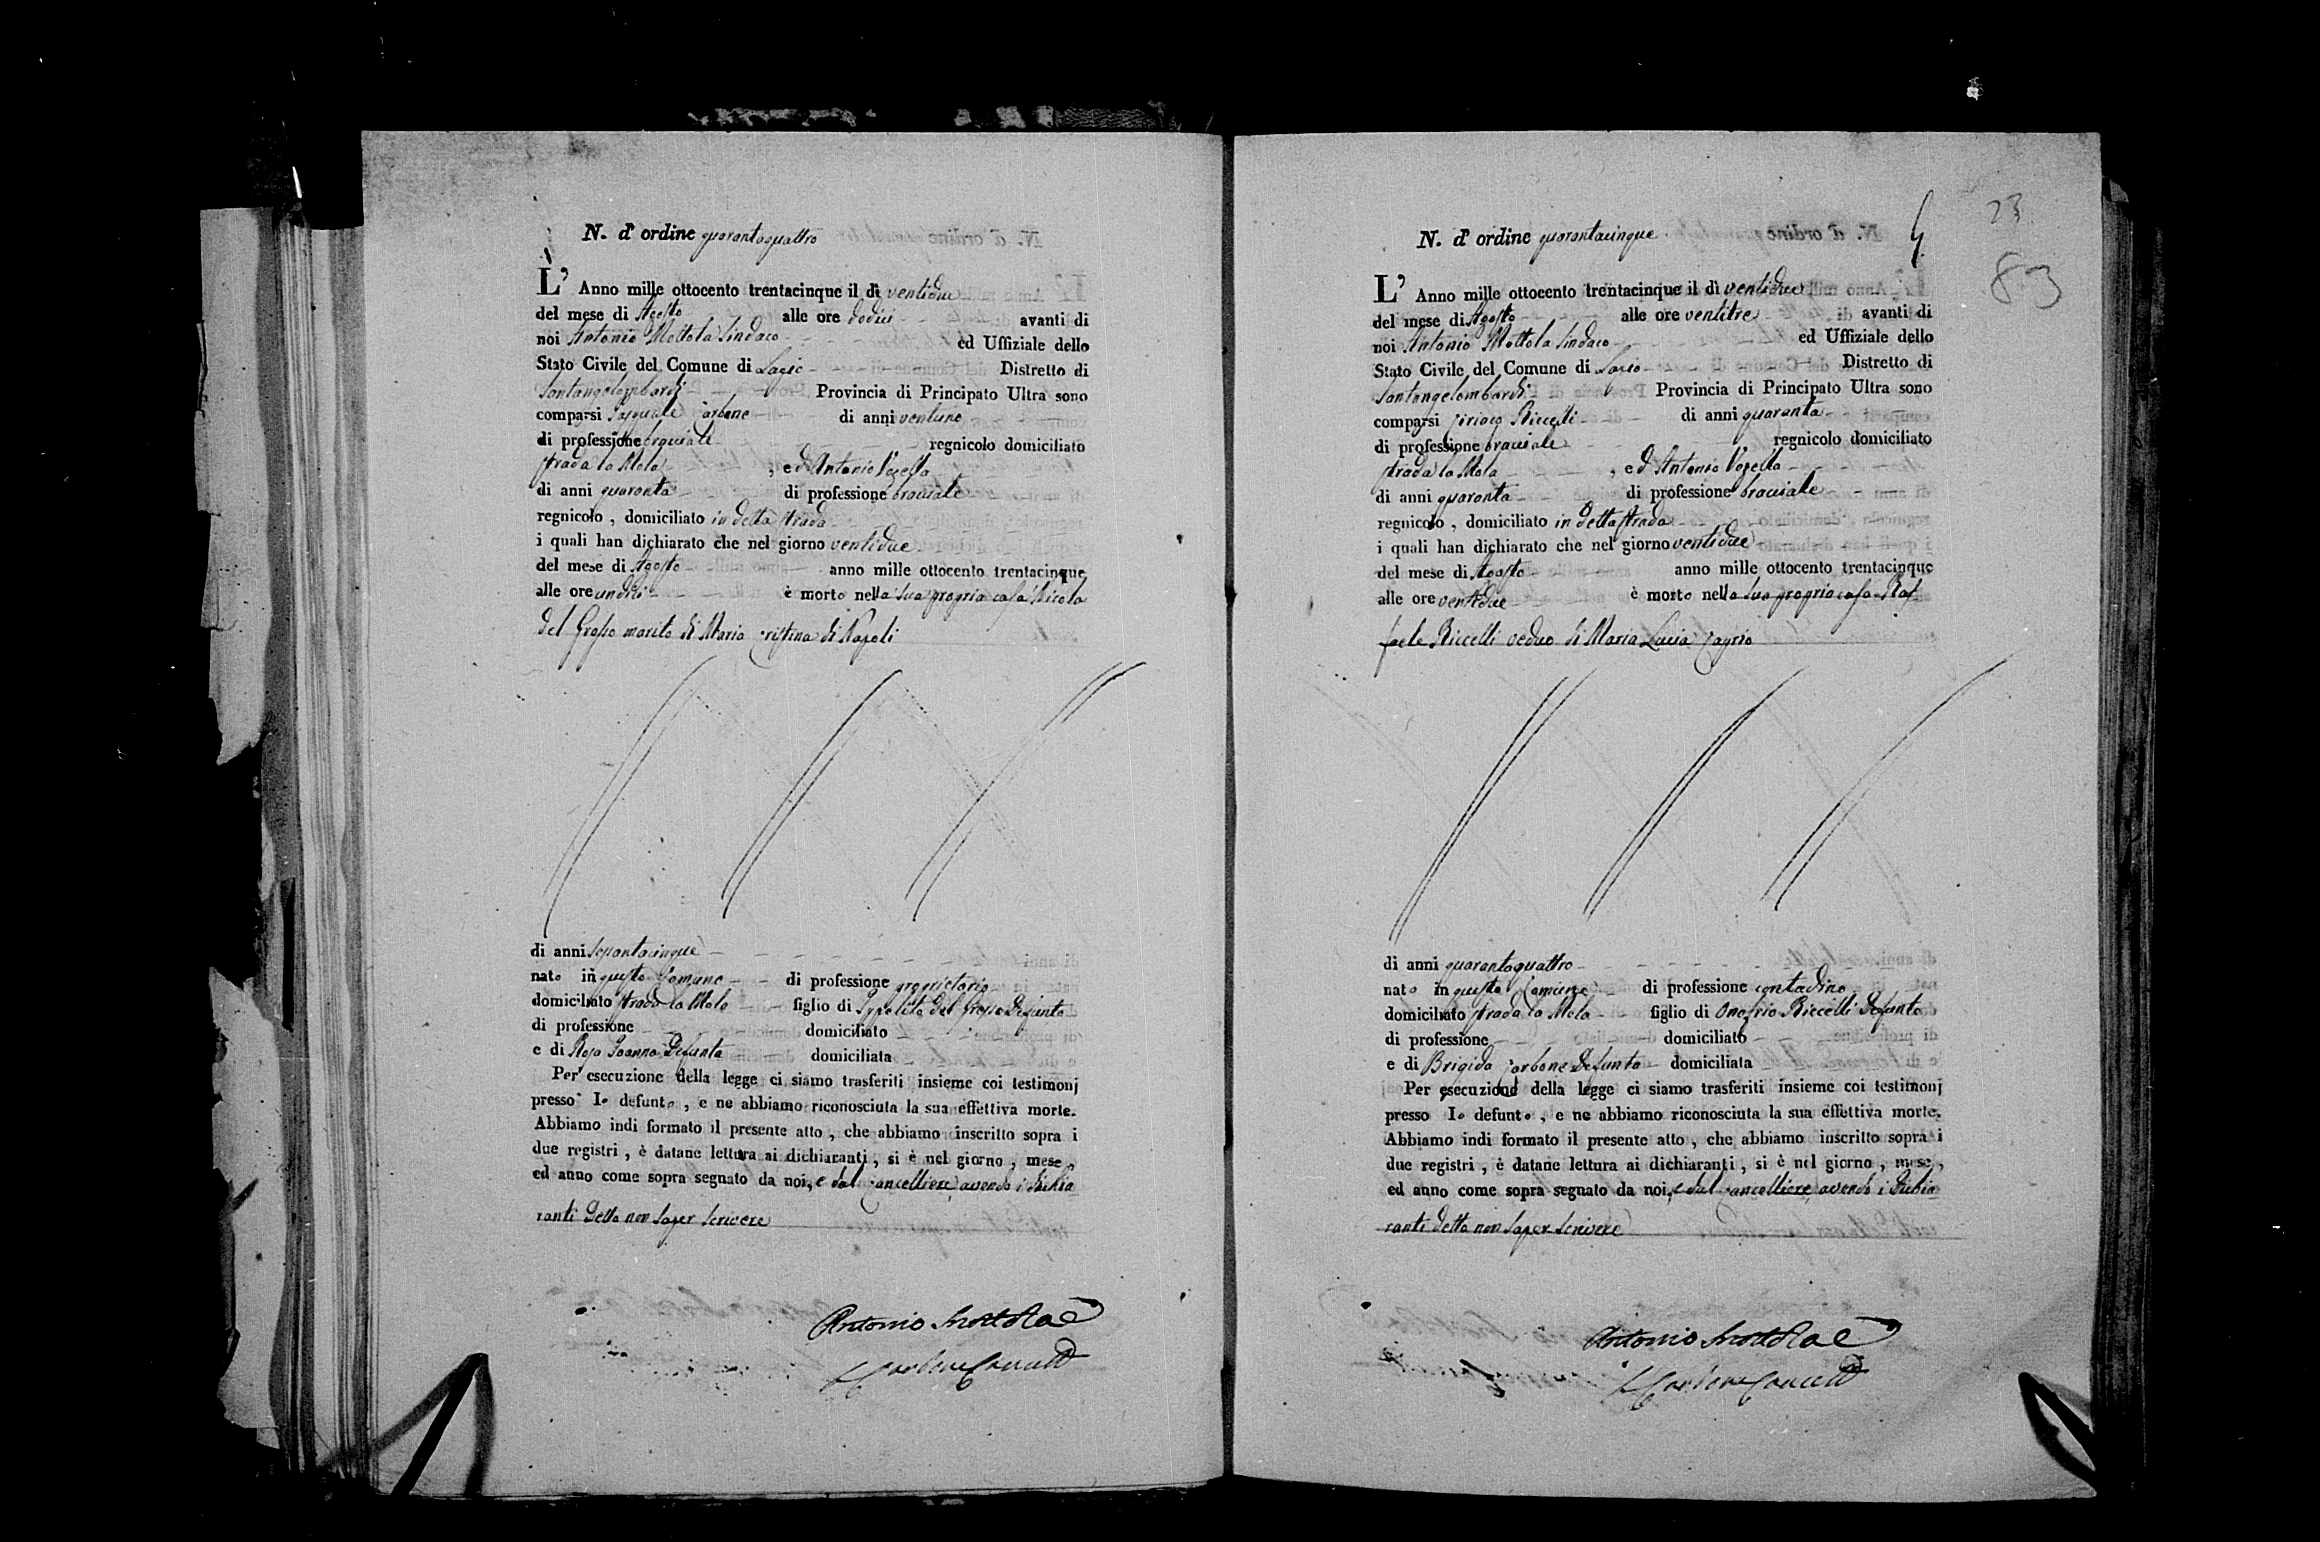 N. d' ordine quarantaquattro
L' Anno mille ottocento trentacinque il dì ventidue
del mese di Agosto alle ore dodici avanti di
noi Antonio Mottola Sindaco ed Uffiziale dello
Stato Civile del Comune di Lacio Distretto di
Santangelolombardi Provincia di Principato Ultra sono
comparsi Pasquale Carbone di anni ventuno
di professione bracciale regnicolo domiciliato
strada la Mola , ed Antonio Vozella
di anni quaranta di professione bracciale
regnicolo , domiciliato in detta strada
i quali han dichiarato che nel giorno ventidue
del mese di Agosto anno mille ottocento trentacinque
alle ore undici è morto nella sua propria casa Nicola
del Grosso marito di Maria Cristina di Napoli
di anni sepantacinque
nato in questo Comune di professione proprietario
domiciliato strada la Mola figlio di Ippolito del Grosso Defunto
di professione domiciliato
e di Rosa Ioanna Defunta domiciliata
Per esecuzione della legge ci siamo trasferiti insieme coi testimonj
presso lo defunto , e ne abbiamo riconosciuta la sua effettiva morte.
Abbiamo indi formato il presente atto , che abbiamo inscritto sopra i
due registri , è datane lettura ai dichiaranti , si è nel giorno , mese ,
ed anno come sopra segnato da noi, e dal Cancelliere avendo i dichia
ranti detto non saper scrivere
Antonio Mottola
Carbone Cancell
23
83
N. d' ordine quarantacinque
L' Anno mille ottocento trentacinque il dì ventidue
del mese di Agosto alle ore ventitre avanti di
noi Antonio Mottola Sindaco ed Uffiziale dello
Stato Civile del Comune di Lacio Distretto di
Santangelolombardi Provincia di Principato Ultra sono
comparsi Ciriaco Riccelli di anni quaranta
di professione bracciale regnicolo domiciliato
strada la Mola , ed Antonio Vozella
di anni quaranta di professione bracciale
regnicolo , domiciliato in detta strada
i quali han dichiarato che nel giorno ventidue
del mese di Agosto anno mille ottocento trentacinque
alle ore ventidue è morto nella sua propria casa Raf
faele Riccelli veduo di Maria Lucia Caprio
di anni quarantaquattro
nato in questo Comune di professione contadino
domiciliato strada la Mola figlio di Onofrio Riccelli Defunto
di professione domiciliato
e di Brigida Carbone Defunta domiciliata
Per esecuzione della legge ci siamo trasferiti insieme coi testimonj
presso lo defunto , e ne abbiamo riconosciuta la sua effettiva morte.
Abbiamo indi formato il presente atto , che abbiamo inscritto sopra i
due registri , è datane lettura ai dichiaranti , si è nel giorno , mese ,
ed anno come sopra segnato da noi, e dal Cancelliere avendo i dichia
ranti detto non saper scrivere
Antonio Mottola
Carbone Cancell